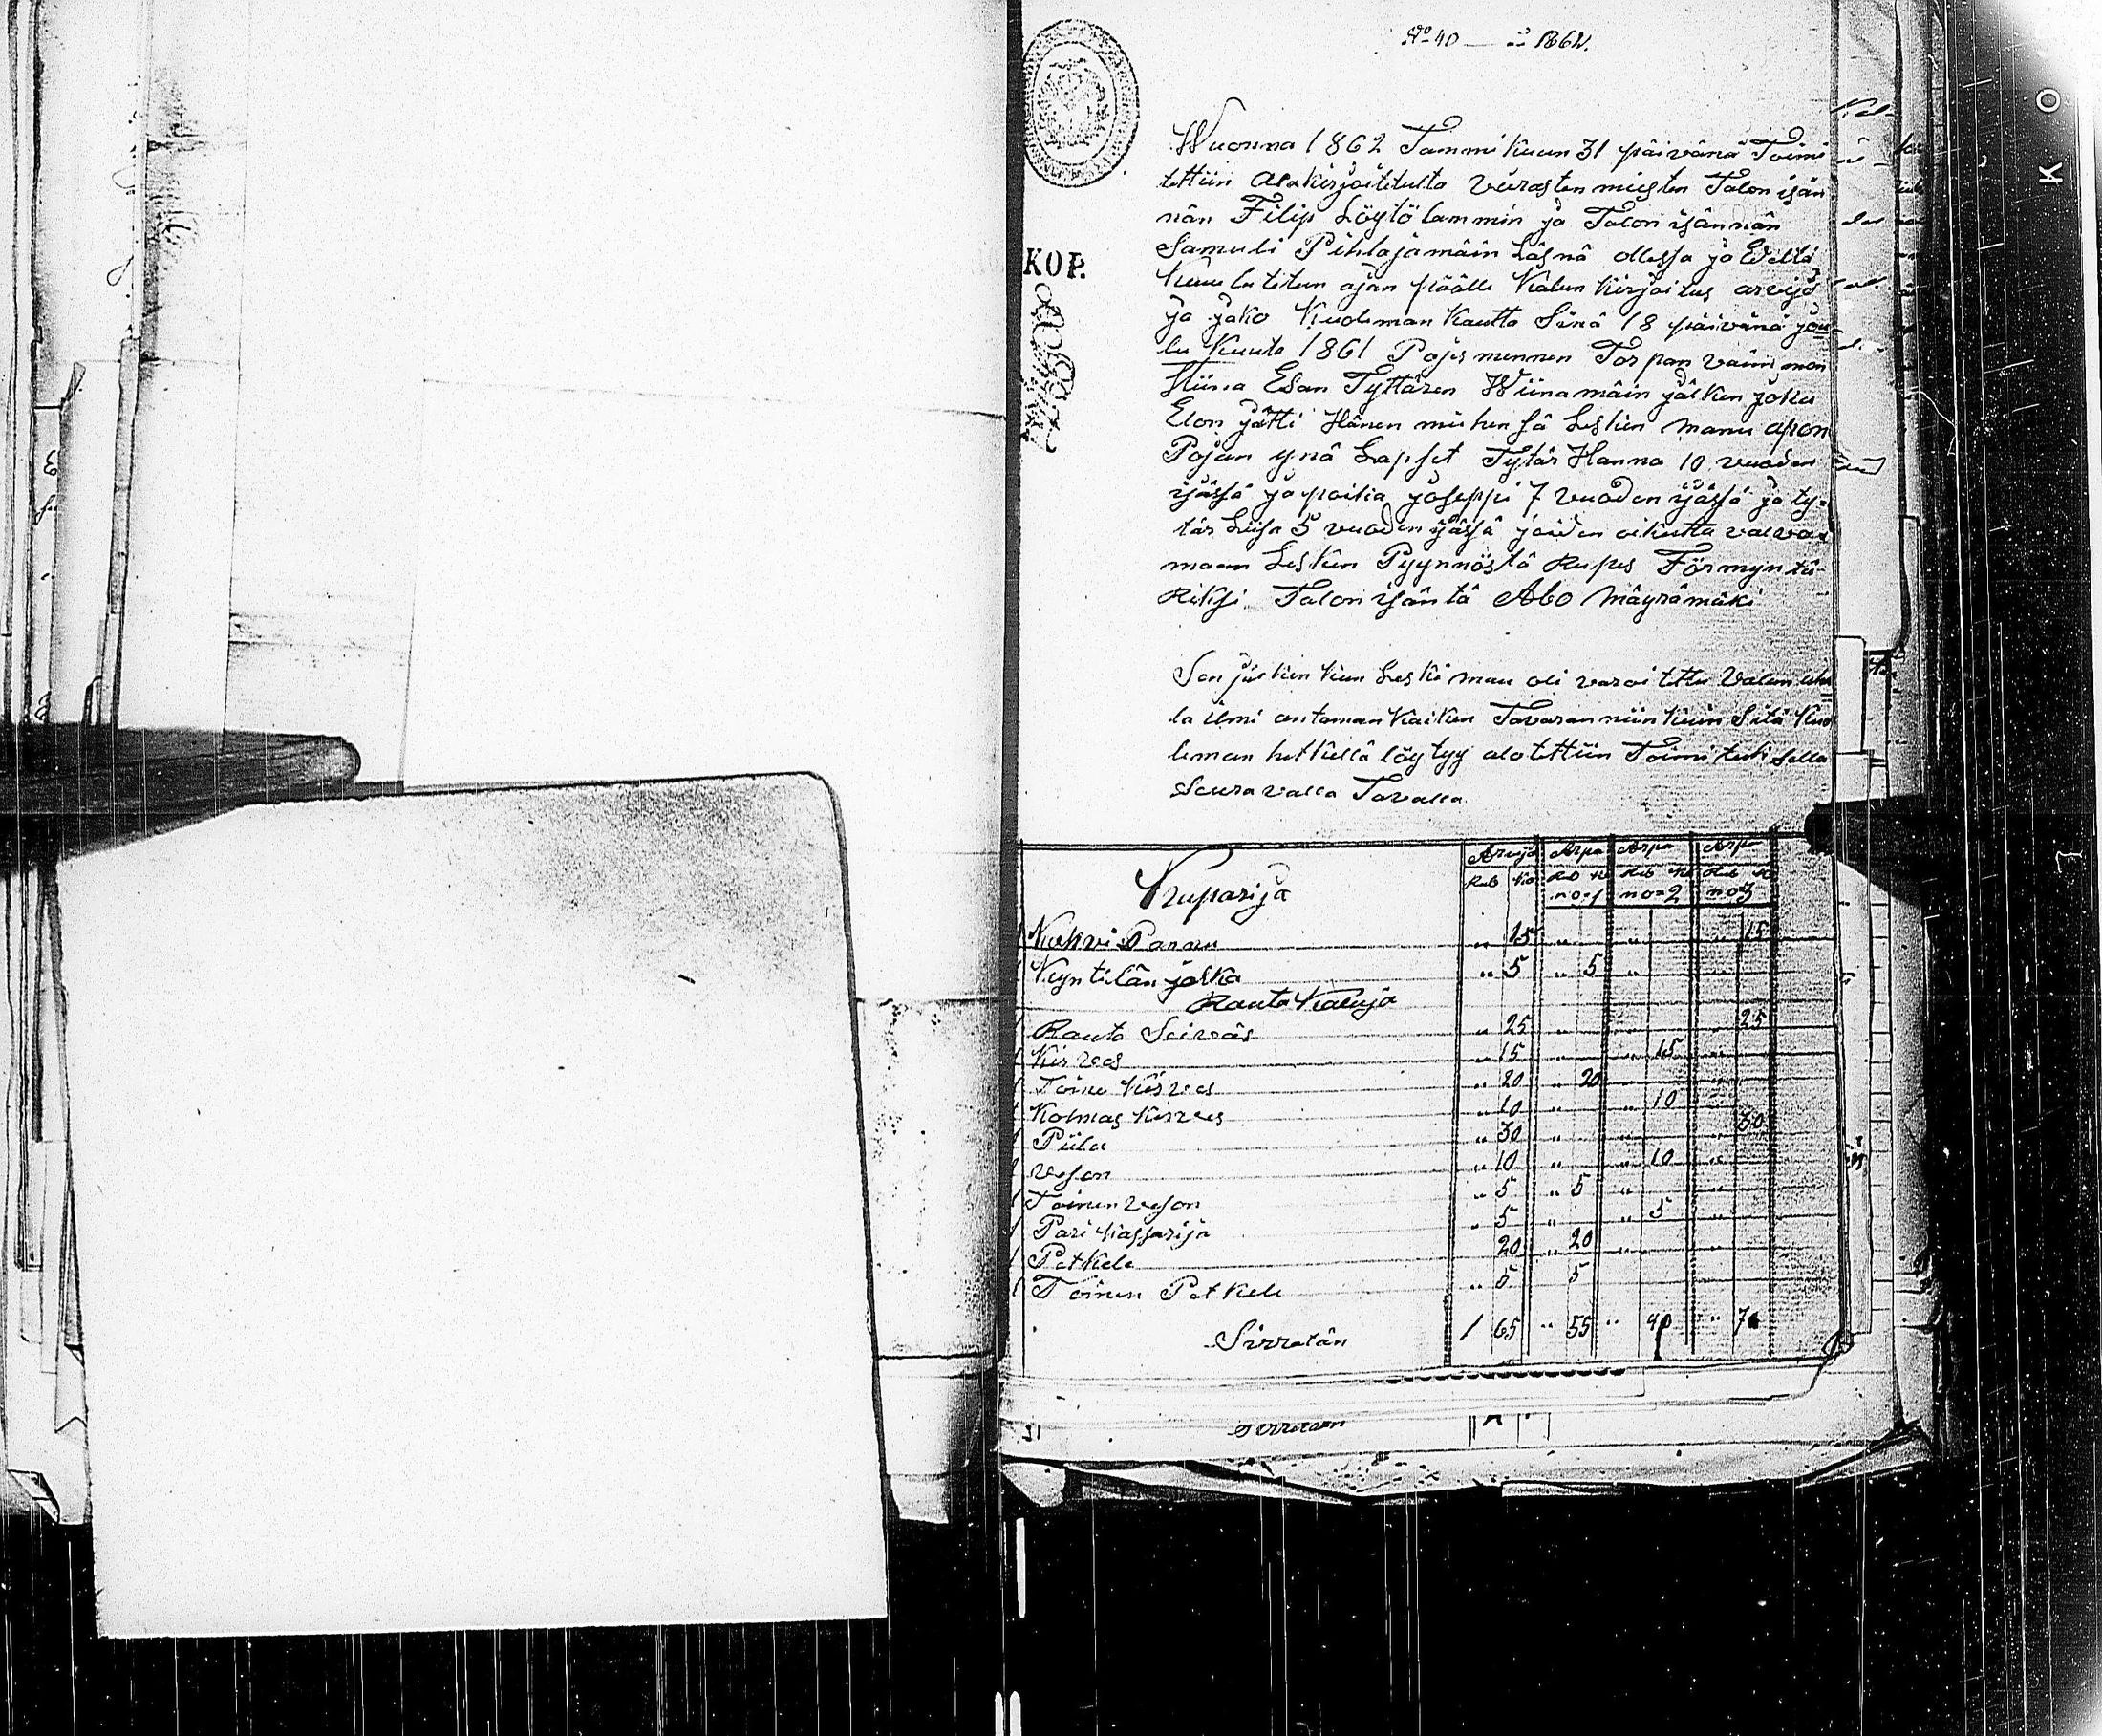 No 40 — 1862.
KOP.
Wuonna 1862 Tammikuun 31 päivänä Toimi
tettiin Alakirjoitetulta vierasten miesten Talon isän
nän Filip Löytölammin ja Talon isännän
Samuli Pihlajamäin Läsnä ollessa ja Edeltä
Kuulutetun ajan päälle Kalun Kirjoitus arvijo
ja jako Kuoleman Kautta Sinä 18 päivänä jou-
lu Kuuta 1861 Pojes mennen Torpan vaimmon
Stiina Esan Tyttären Wiinamäin jälken joka
Elon jätti Hänen miehensä Leskien Manu apon
Pojan ynä Lapset Tytär Hanna 10 vuoden
ijässä ja poika joseppi 7 vuoden ijässä ja ty-
tär Liisa 5 vuoden ijässä joiden oikutta valvo
maan Leskien Pyynnöstä Rupes Förmyntä-
Riksi Talon isäntä Abo Mäyrämäki
Sen jälkin kun Leski manu oli varoitettu Valan uha
la ilmi antaman Kaiken Tavaran niin kuin Sitä Kuo
leman hetkellä löytyy alotettiin Toimituksella
Seuravalla Tavalla
Kuparija
Arvijo Arpa Arpa Arpa
Rub Ko Rub Ko Rub Ko Rub Ko
no=1 no=2 no=3
1 Kahvi Pannu " 15 " " " 15
1 Kyntilän jalka " 5 " 5 "
Rauta Kaluja
1 Rauta Seiväs " 25 " 25
1 Kirves " 15 " " 15 "
1 Toine Kirves " 20 " 20 " "
1 Kolmas Kirves " 10 " " 10
1 Piilu " 30 " " 30
1 veson " 10 " " 10 "
1 Toinen veson " 5 " 5 " "
1 Pari hassarija " 5 " " 5 "
1 Petkele 20 " 20 " "
1 Toinen Petkele " 5 5
Sirretän 1 65 " 55 " 40 " 70